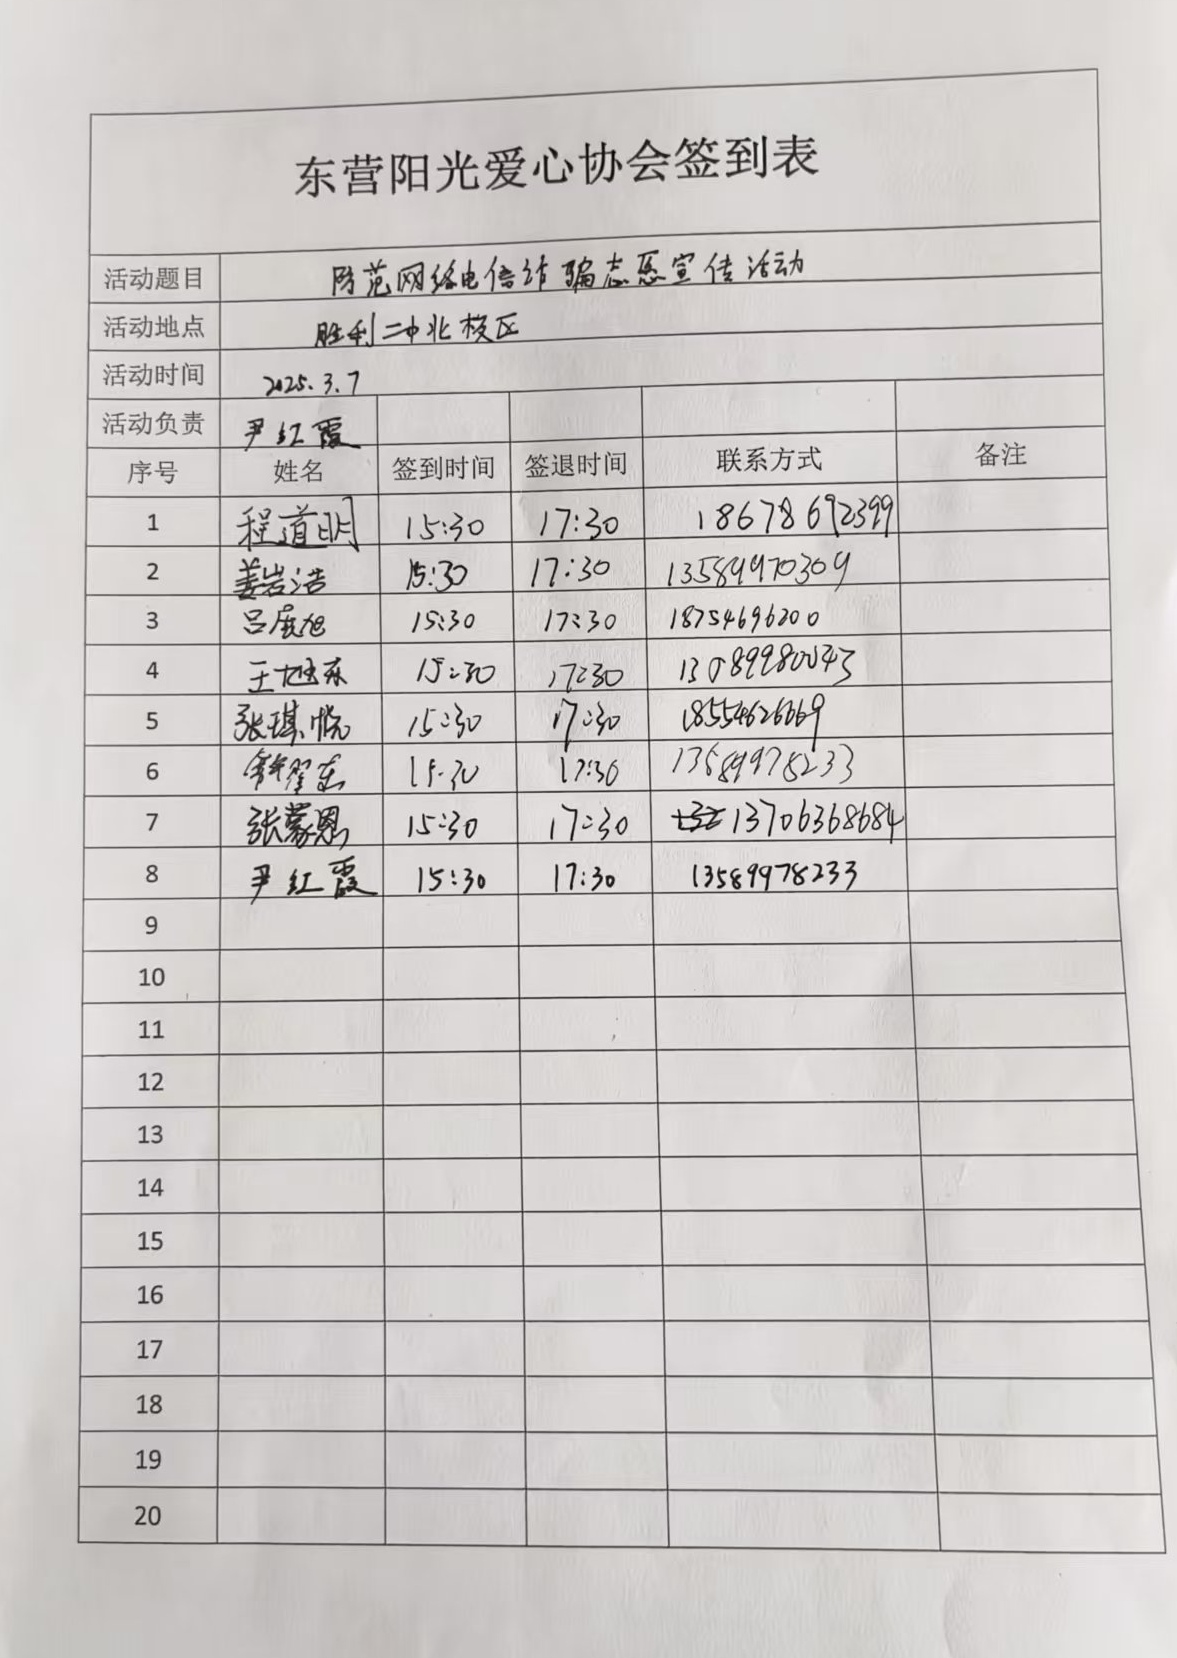 东营阳光爱心协会签到表
活动题目 防范网络电信诈骗志愿宣传活动
活动地点 胜利二中北校区
活动时间 2025.3.7
活动负责 尹红霞
序号 姓名 签到时间 签退时间 联系方式 备注
1 程道明 15:30 17:30 18678692399
2 姜岩浩 15:30 17:30 13589970309
3 吕展旭 15:30 17:30 18754696200
4 王旭东 15:30 17:30 13589980043
5 张琪悦 15:30 17:30 18554626669
6 15:30 17:30 13589978233
7 张蒙恩 15:30 17:30 13706368684
8 尹红霞 15:30 17:30 13589978233
9
10
11
12
13
14
15
16
17
18
19
20